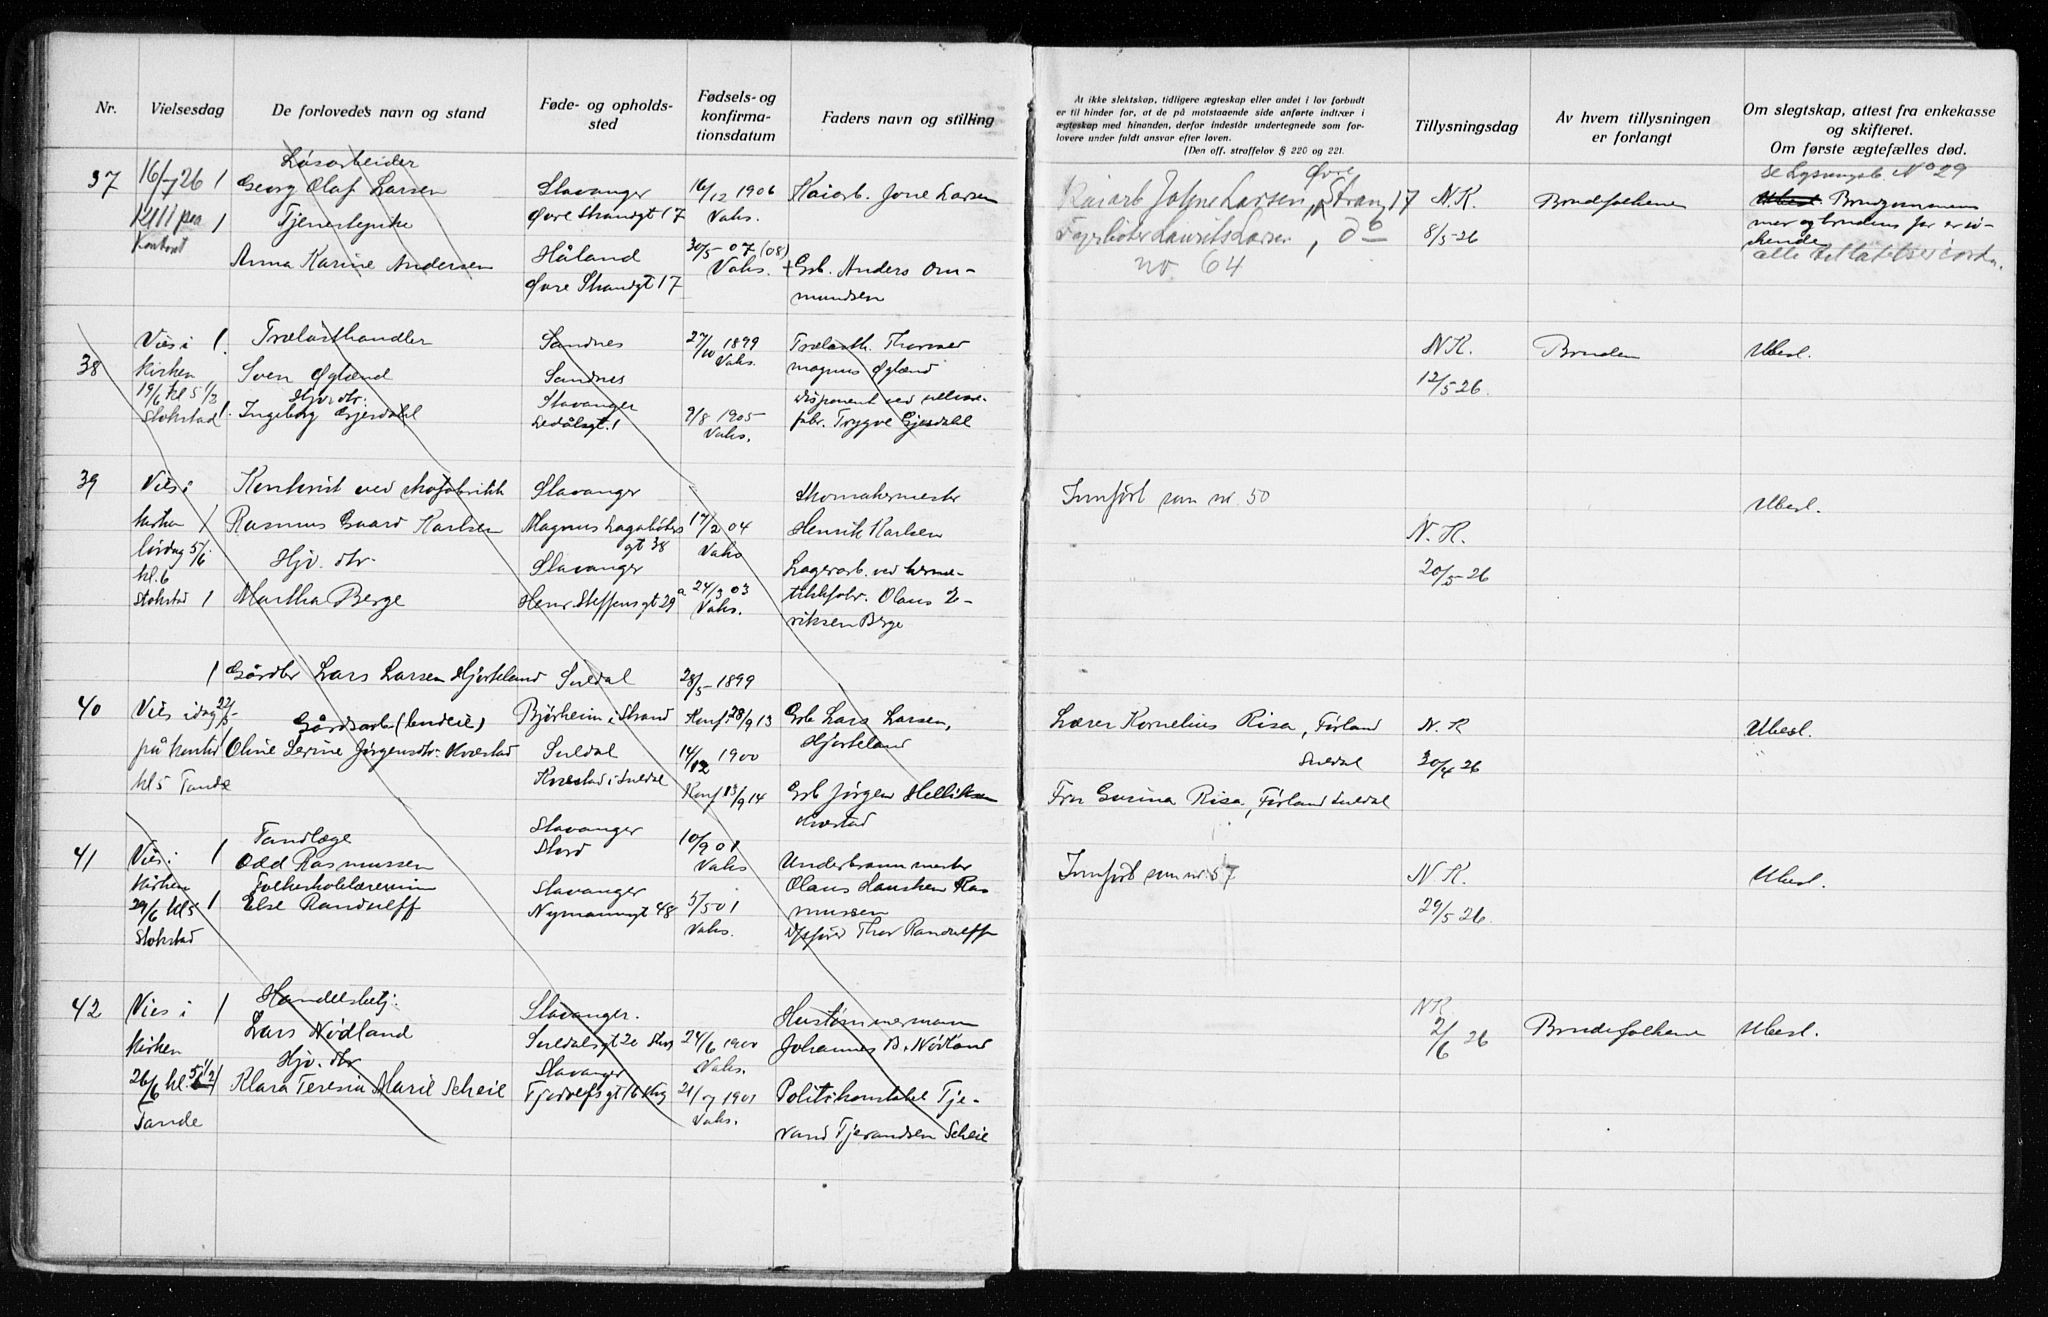 Nr.
Vielsesdag
De forlovede's navn og stand
Føde- og opholds-
sted
Fødsels- og
konfirma-
tionsdatum
Faders navn og stilling
At ikke slektskap, tidligere ægteskap eller andet i lov forbudt
er til hinder for, at de på motstaaende side anførte indtræer i
ægteskap med hinanden, derfor indestår undertegnede som for-
lovere under faldt ansvar efter loven.
(Den off. straffelov § 220 og 221.
Tillysningsdag
Av hvem tillysningen
er forlangt
Om slegtskap, attest fra enkekasse
og skifteret.
Om første ægtefælles død.
37
16/7 26 1
Kl 11 paa 1
Kontoret
Løsarbeider
Georg Olaf Larsen
Tjenestepike
Anna Karine Andersen
Stavanger
Øvre Strandgt 17
Håland
Øvre Strandgt 17
16/12 1906
Vaks.
30/5-07 (08)
Vaks.
Kaiarb. Jone Larsen
+ Grb. Anders Om-
mundsen
Kaiarb Johne Larsen, Øvre Strang 17
Lauritz Larsen, do
no. 64
N.K.
8/5-26
Brudefolkene
se Lysningsb. No 29
Ubesl. Brudgommens
mor og brudens far er sø-
skende
38
Vies i 1
kirken
19/6 kl 5 1/2
Stokstad 1
Trælasthandler
Sven Øglænd
Hjv. dtr.
Ingeborg Gjesdahl
Sandnes
Sandnes
Stavanger
Ledålsgt. 1
27/10 1899
Vaks.
9/8 1905
Vaks.
Trælasth. Thorvald
Magnus Øglænd
Disponent ved
fabr. Trygve Gjesdahl
N.K.
12/5-26.
Bruden
Ubesl.
39
Vies i
kirken 1
lørdag 5/6
kl. 6
Stokstad 1
Kontorist ved
Rasmus Gaard Karlsen
Hjv. dtr.
Martha Berge
Stavanger
Magnus Lagabøters
gt 38
Stavanger
Henr. Steffensgt 29 a
17/2 04
Vaks
24/3 03
Vaks.
Skomakermester
Henrik Karlsen
Lagerarb. ved herme-
tikkfabr. Olaus E-
riksen Berge
Innført som nr. 50
N.K.
20/5-26
Ubesl.
40
1
Vies idag 22/5-
på kontoret 1
kl 5 Tande
Gårdbr Lars Larsen Hjorteland
Gårdsarb (
Oline Serine Jørgensdtr. Kvæstad
Suldal
Bjørheim i Strand
Suldal
Kvæstad i Suldal
28/5-1899
Konf. 28/9 13
14/12 1900
Konf 13/9 14
Grb Lars Larsen,
Hjorteland
Grb Jørgen Helliksen
Kvæstad
Lærer Kornelius Risa, Førland
Suldal
Fru Gurina Risa, Førland Suldal
N.K
30/4 26
Ubesl.
41
Vies i 1
kirken
29/6 kl 5 1
Stokstad
Tandlæge
Odd Rasmussen
Folkeskolelærerinne
Else Randulff
Stavanger
Stord
Stavanger
Nymannsgt 48
10/9 01
Vaks
5/5 01
Vaks.
Underbrannmester
Olaus Hansken Ras
mussen
Thor Randulff
Innført som nr. 57
N.K.
29/5 26
Ubesl.
42
Vies i 1
kirken
26/6 kl. 5 1/2 1
Tande
Handelsbetj.
Lars Nødland
Hjv. dtr
Klara Teresia Marie Scheie
Stavanger.
Suldalsgt 20
Stavanger
Fjodolfsgt 16
24/6 1900
Vaks.
21/7 1901
Vaks.
Hustømmermann
Johannes B. Nødland
Politikonstabel Tje-
rand Tjerandsen Scheie
N.K.
2/6 26
Brudefolkene
Ubesl.